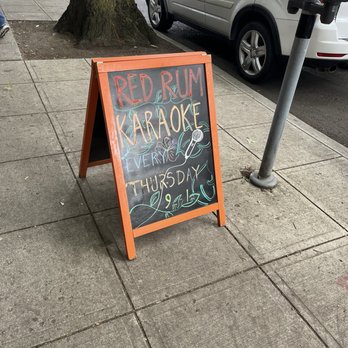 RED RUM
KARAOKE
EVERY
THURSDAY
9